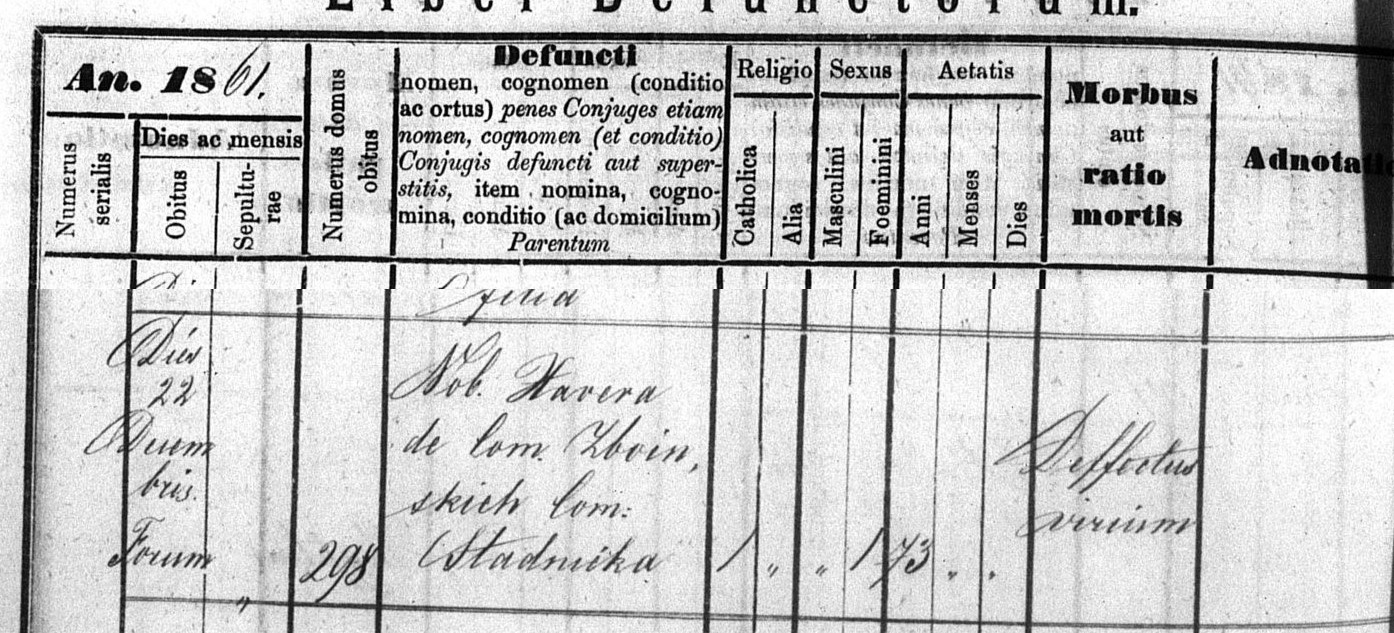 Liber Defunctorum.
An. 1861.
Numerus serialis
Dies ac mensis
Obitus
Sepultu-
rae
Numerus domus
obitus
Defuncti
nomen, cognomen (conditio
ac ortus) penes Conjuges etiam
nomen, cognomen (et conditio)
Conjugis defuncti aut super-
stitis, item nomina, cogno-
mina, conditio (ac domicilium)
Parentum
Religio
Catholica
Alia
Sexus
Masculini
Foeminini
Aetatis
Anni
Menses
Dies
Morbus
aut
ratio
mortis
Adnotati
filia
Dies
22
Decem
bris.
Forum
„
298
Nob. Xavera
de Com. Zboin,
skich Com:
Stadnicka
1 „ „ 1 73 „ „
Deffectus
virium